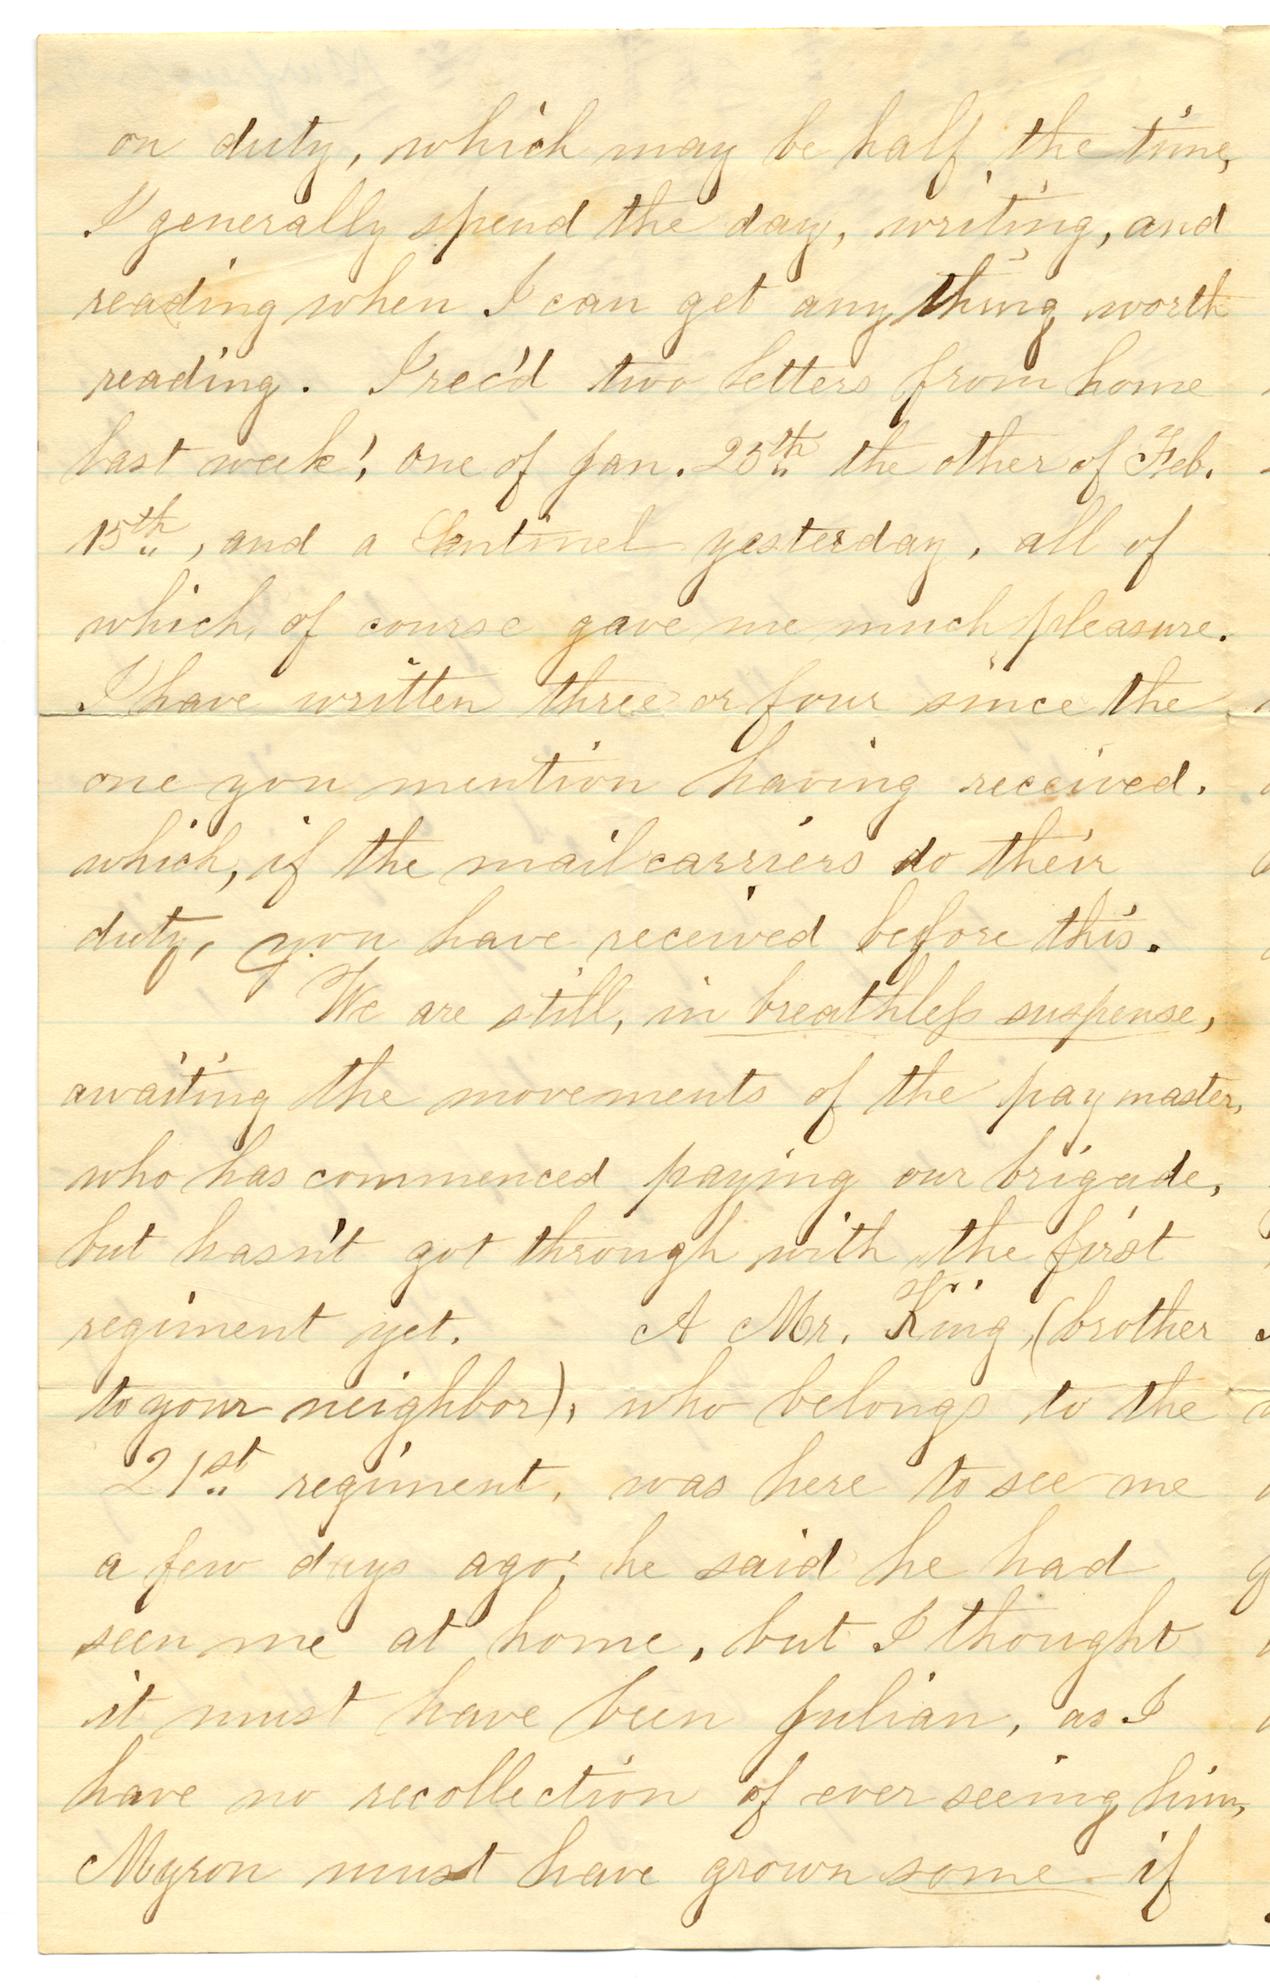 on duty, which may be half the time,
I generally spend the day, writing, and
reading when I can get any thing worth
reading. I rec'd two letters from home
last week; one of Jan. 25th the other of Feb.
15th, and a Sentinel yesterday, all of
which, of course gave me much pleasure.
I have written three or four since the
one you mention having received.
which, if the mail carriers do their
duty, you have received before this.
We are still, in breathless suspense,
awaiting the movements of the paymaster,
who has commenced paying our brigade,
but hasn't got through with the first
regiment yet. A Mr. King, (brother
to your neighbor), who belongs to the
21st regiment, was here to see me
a few days ago; he said he had
seen me at home, but I thought
it must have been Julian, as I
have no recollection of ever seeing him,
Myron must have grown some if